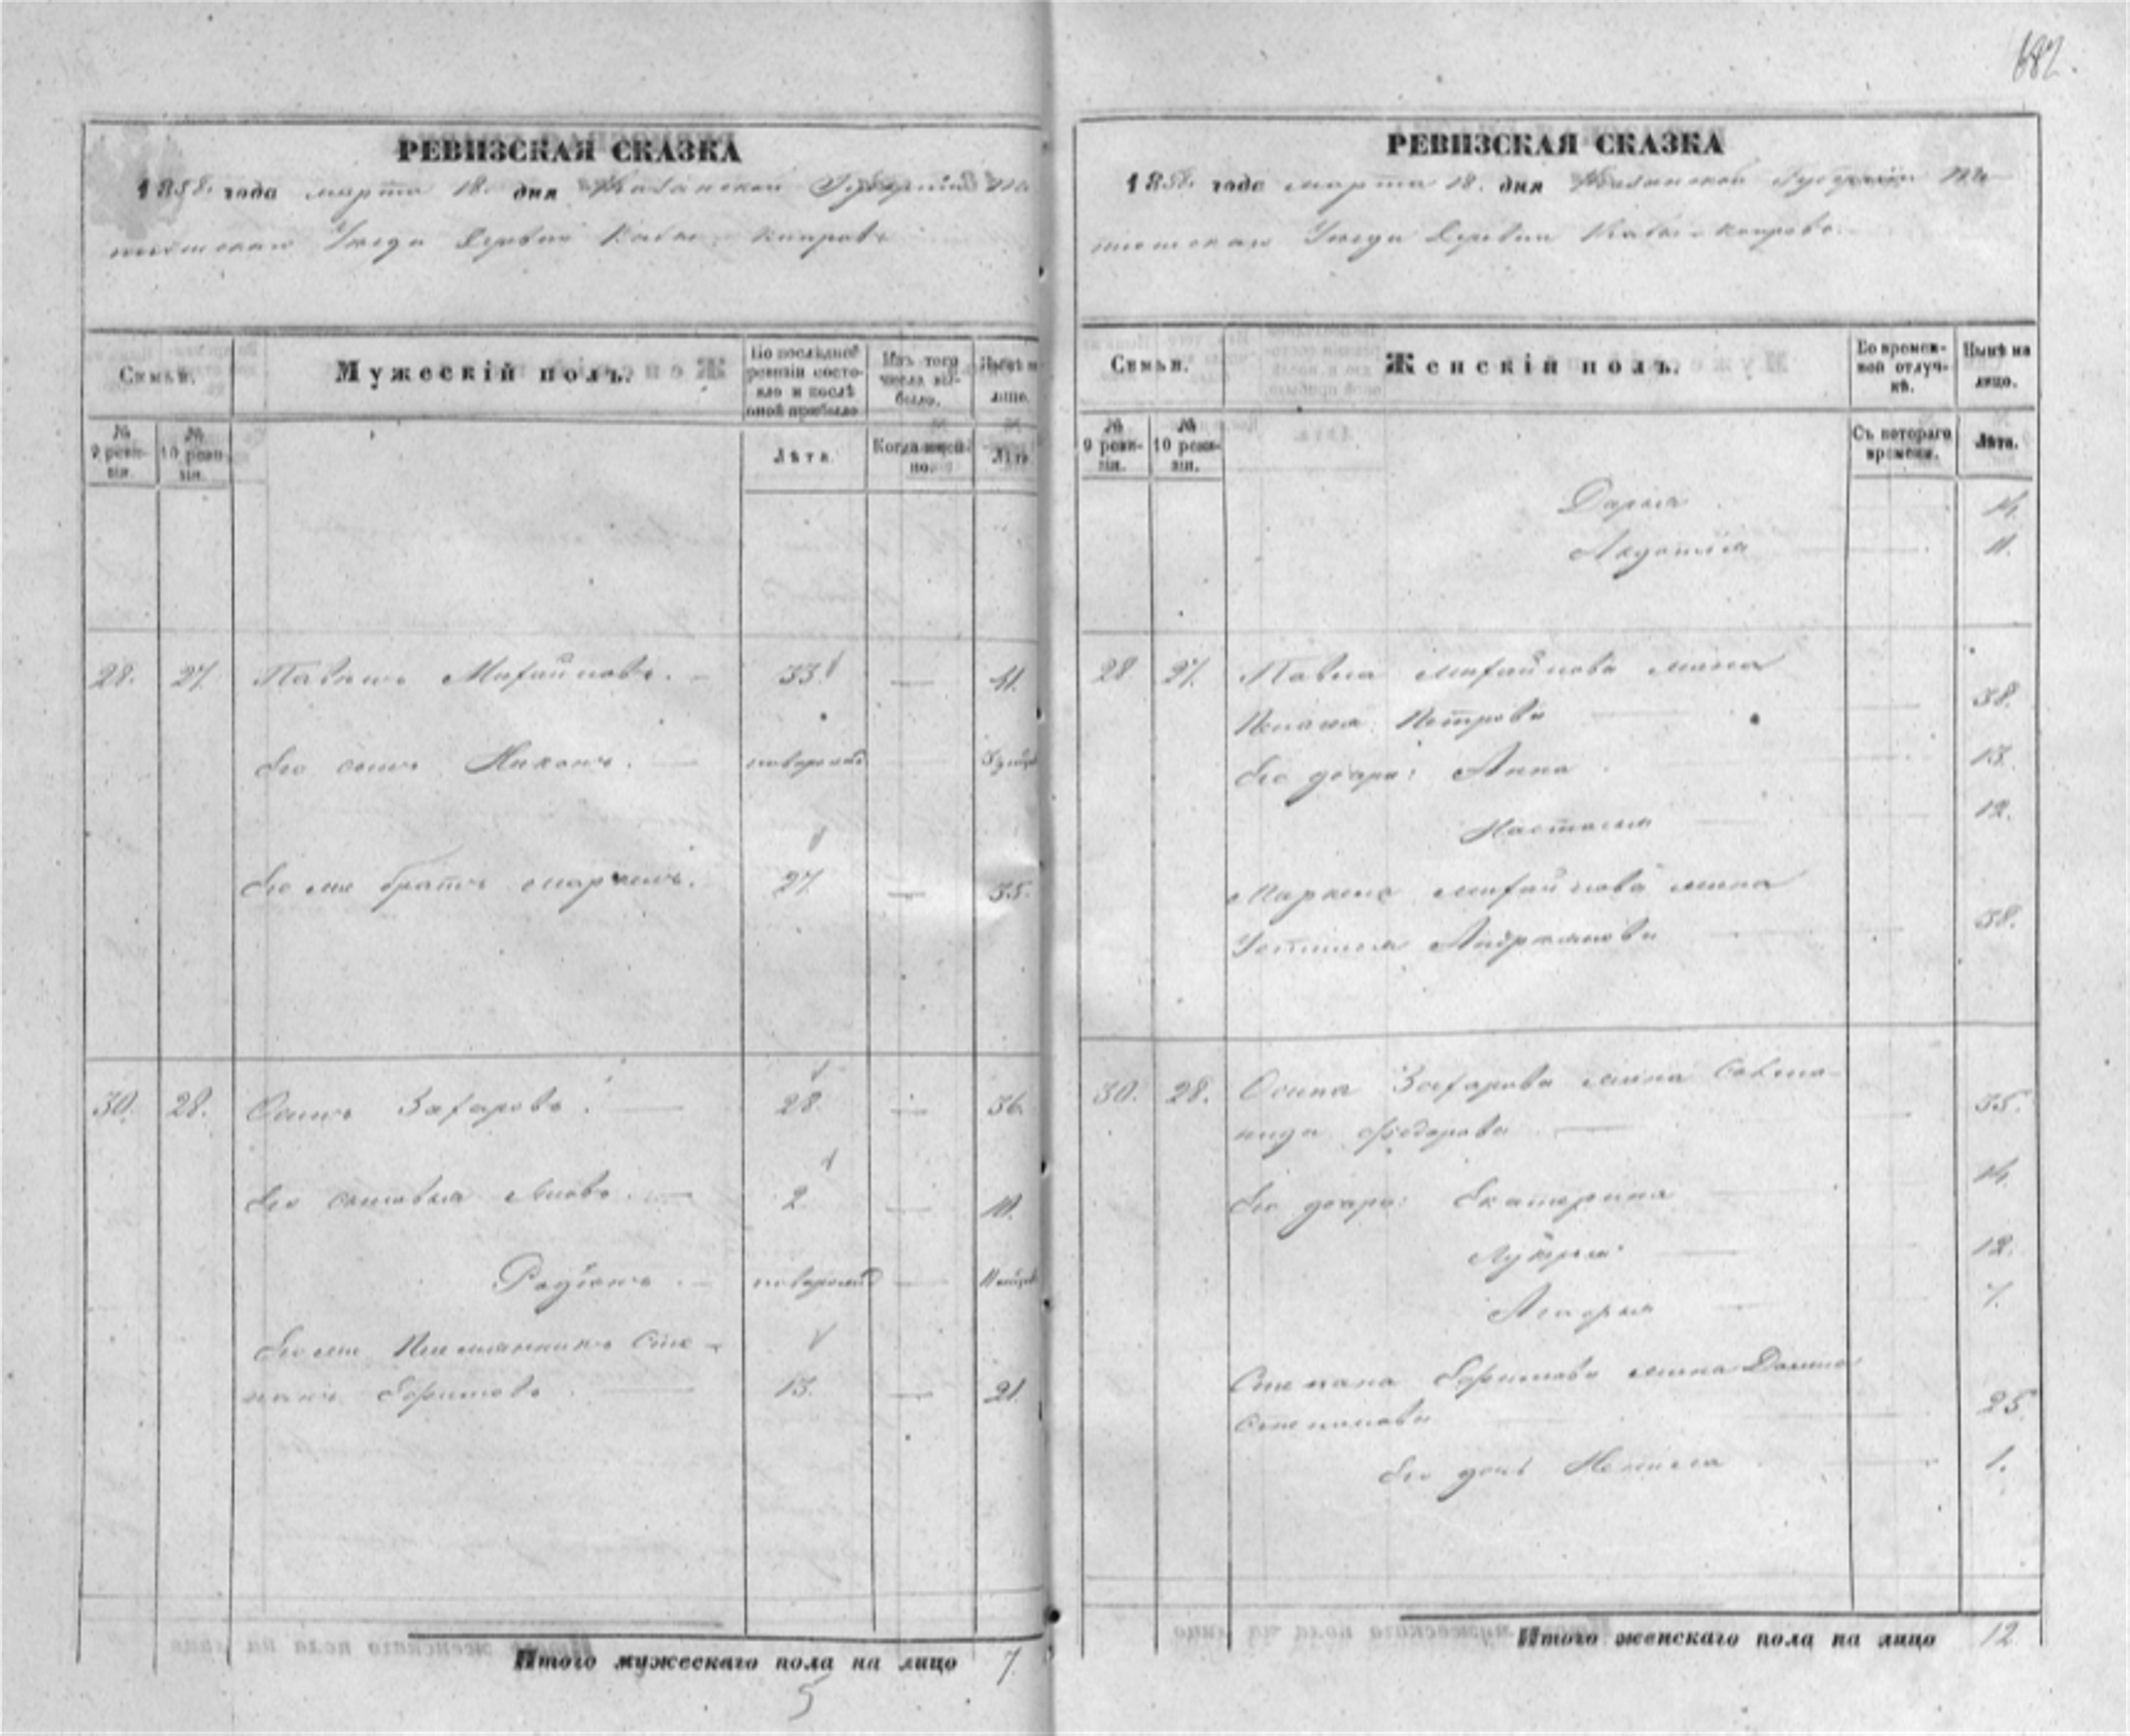 682.
РЕВИЗСКАЯ СКАЗКА
1858. года марта 18. дня Казанской Губернии
Уезда Деревни
Семьи.
Мужескій полъ.
По послѣдней ревизіи состояло и послѣ оной прибыло
Изъ того числа выбыло.
Нынѣ на лицо.
№ 9 ревизіи.
№ 10 ревизіи.
Лѣта.
Когда именно.
Лѣта
28. 27. Павелъ Михайловъ. 33 — 41.
Его сынъ Никонъ. новорожд
Его же братъ Маркелъ. 27 — 35.
30. 28. Осипъ Захаровъ. 28 — 36.
Его сыновья 2 —
Родіонъ. новорожд —
Его же Племянникъ Сте-
панъ Ефимовъ 13. — 21.
Итого мужескаго пола на лицо 7
5
РЕВИЗСКАЯ СКАЗКА
1858. года марта 18. дня Казанской Губерніи
Уезда Деревни
Семьи.
Женскій полъ.
Во временной отлучкѣ.
Нынѣ на лицо.
№ 9 ревизіи.
№ 10 ревизіи.
Съ котораго времени.
Лѣта.
Дарья 14.
11.
28 27. Павла Михайлова жена
Петрова 38.
Его дочри: Анна 13.
Настасья 12.
Маркела Михайлова жена
Устинья Андреянова 38.
30. 28. Осипа Захарова жена Соломо-
нида Федорова 35.
Его дочри: Екатерина 14.
Лукерья 12.
Агафья 7.
Степана Ефимова жена
Степанова 25
Его дочь 1.
Итого женскаго пола на лицо 12